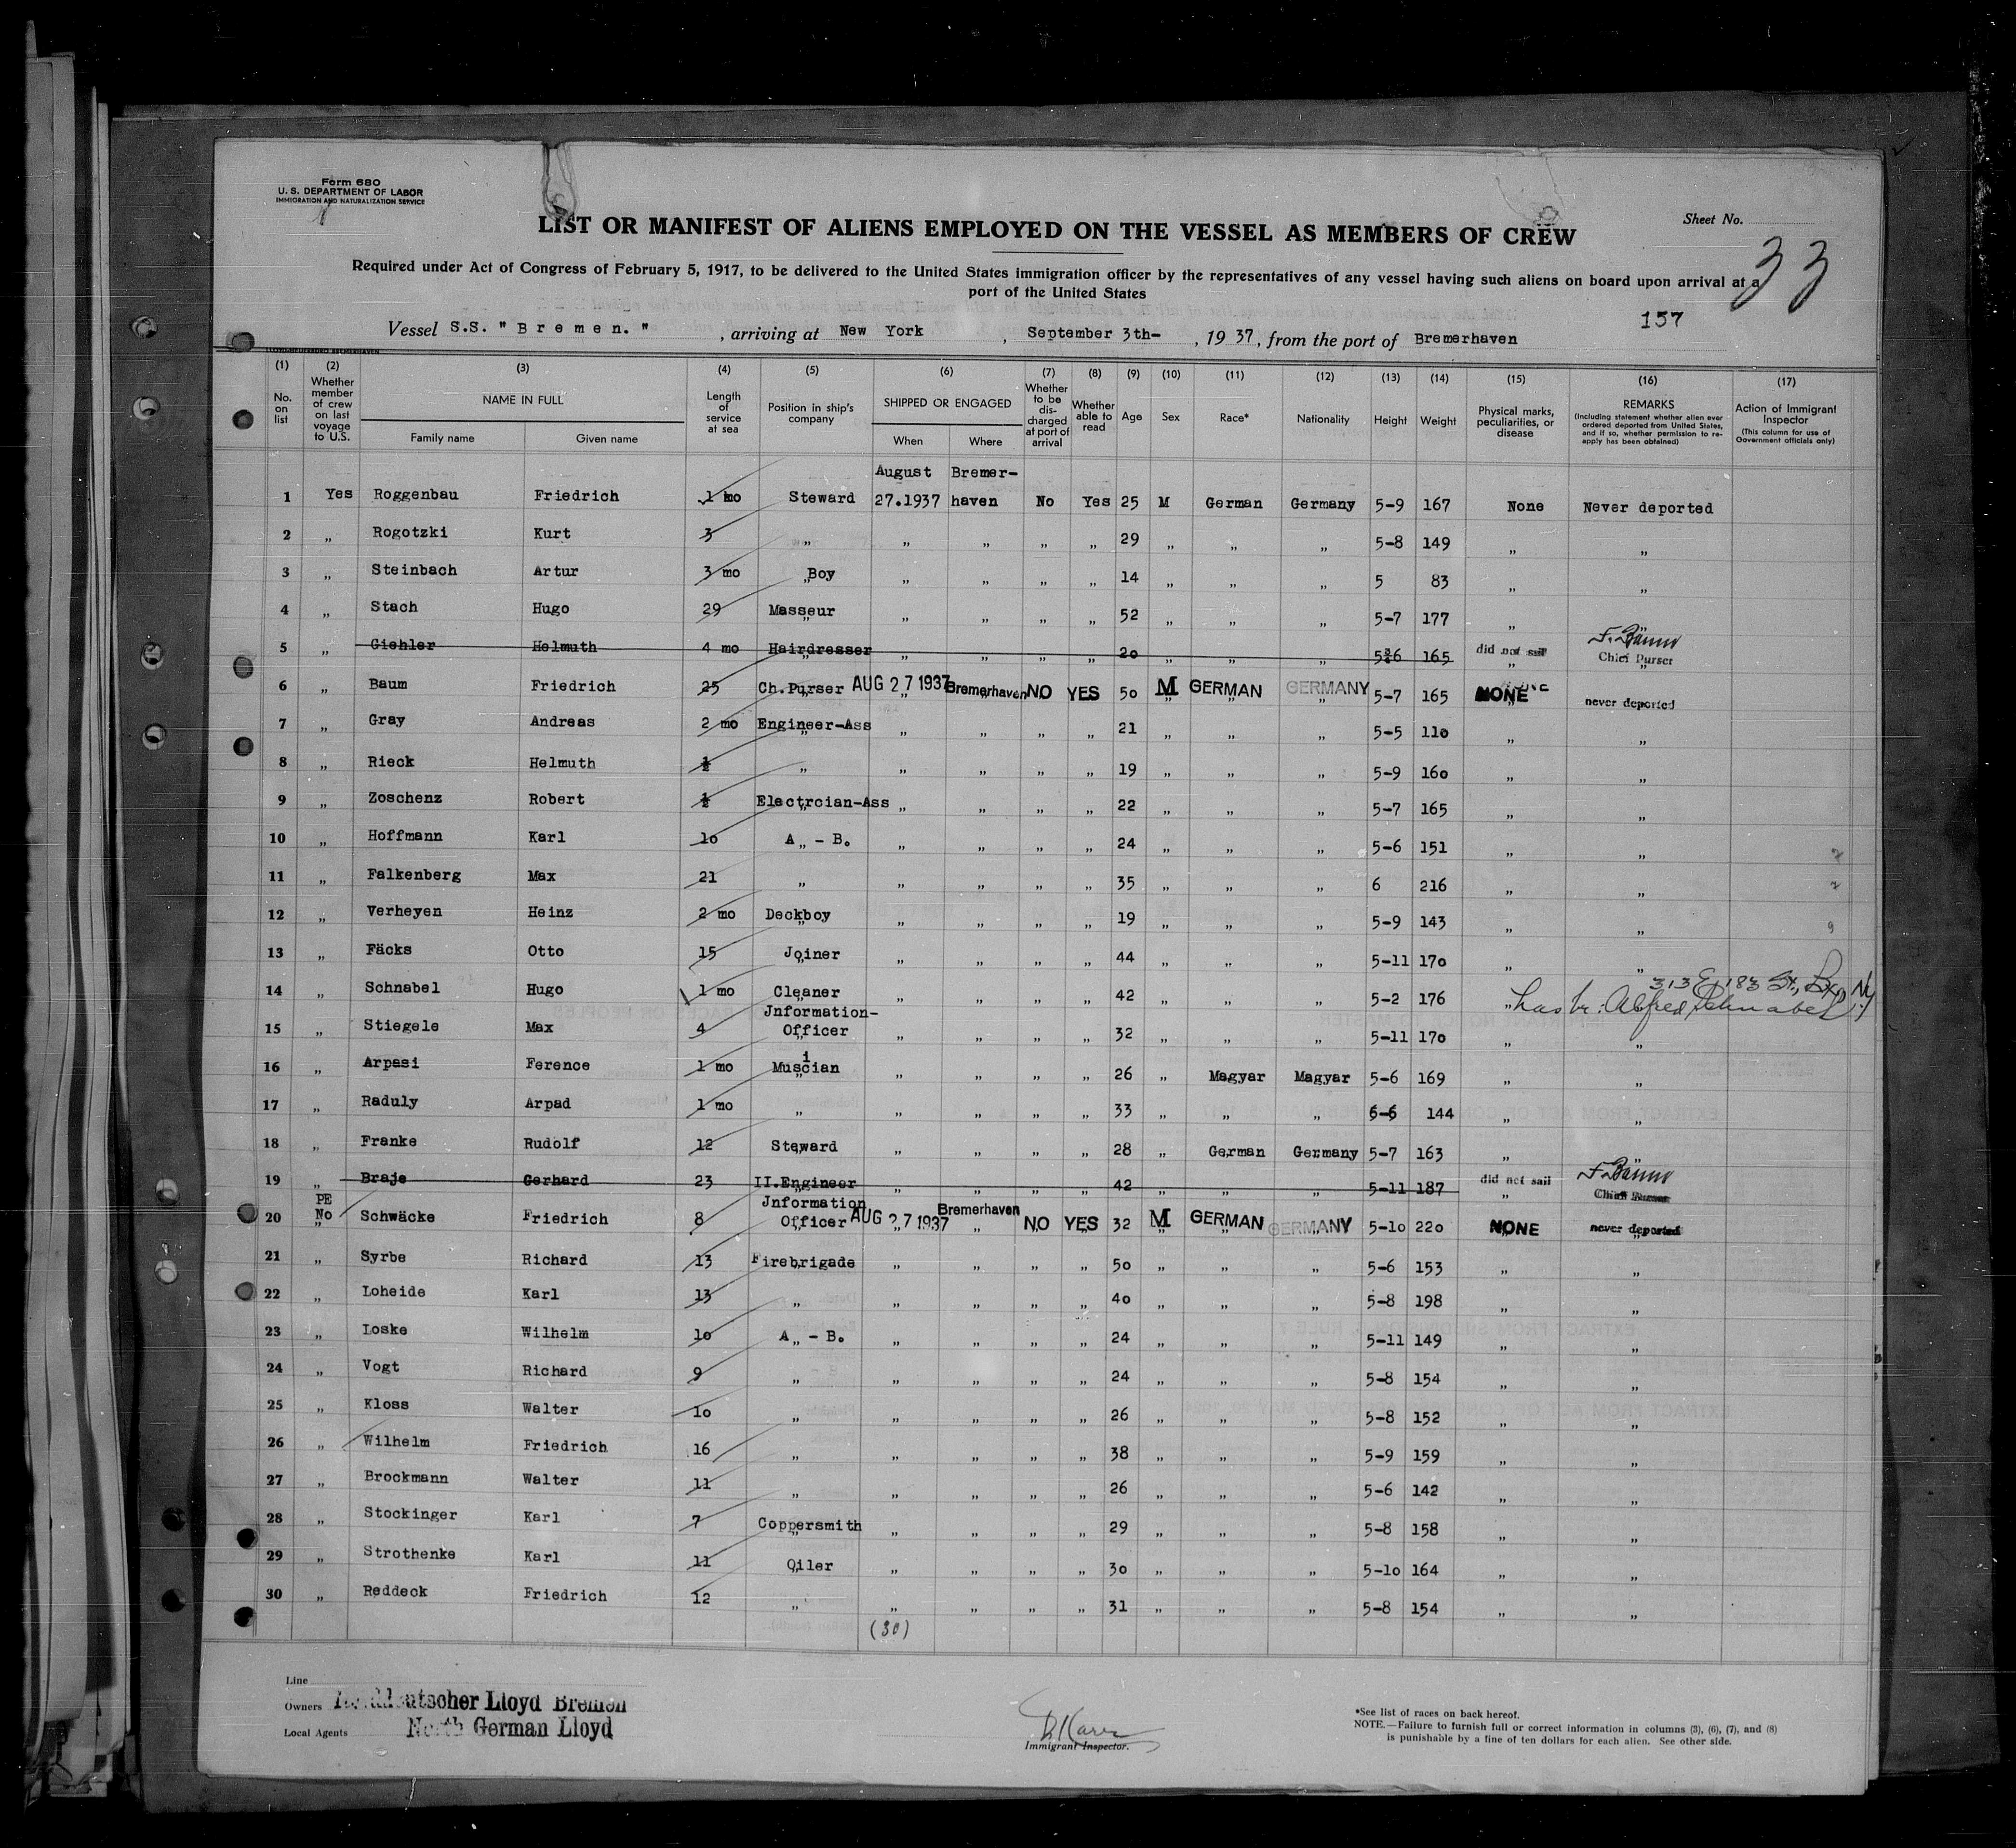 Form 680
U. S. DEPARTMENT OF LABOR
IMMIGRATION AND NATURALIZATION SERVICE
Sheet No.
33
LIST OR MANIFEST OF ALIENS EMPLOYED ON THE VESSEL AS MEMBERS OF CREW
Required under Act of Congress of February 5, 1917, to be delivered to the United States immigration officer by the representatives of any vessel having such aliens on board upon arrival at a
port of the United States
157
Vessel S.S. "Bremen.", arriving at New York, September 3th-, 1937, from the port of Bremerhaven
(1) (2) (3) (4) (5) (6) (7) (8) (9) (10) (11) (12) (13) (14) (15) (16) (17)
No. on list
Whether member of crew on last voyage to U.S.
NAME IN FULL
Family name Given name
Length of service at sea
Position in ship's company
SHIPPED OR ENGAGED
When Where
Whether to be discharged at port of arrival
Whether able to read
Age Sex Race* Nationality Height Weight
Physical marks, peculiarities, or disease
REMARKS
(Including statement whether alien ever ordered deported from United States, and if so, whether permission to re-apply has been obtained)
Action of Immigrant Inspector
(This column for use of Government officials only)
August Bremer-
1 Yes Roggenbau Friedrich 1 mo Steward 27.1937 haven No Yes 25 M German Germany 5-9 167 None Never deported
2 „ Rogotzki Kurt 3 „ „ „ „ „ 29 „ „ „ 5-8 149 „ „
3 „ Steinbach Artur 3 mo Boy „ „ „ „ 14 „ „ „ 5 83 „ „
4 „ Stach Hugo 29 Masseur „ „ „ „ 52 „ „ „ 5-7 177 „
5 „ Giehler Helmuth 4 mo Hairdresser „ „ „ „ 20 „ „ „ 6 165 did not sail Chief Purser
6 „ Baum Friedrich 25 Ch.Purser AUG 27 1937 Bremerhaven NO YES 50 M GERMAN GERMANY 5-7 165 NONE never deported
7 „ Gray Andreas 2 mo Engineer-Ass „ „ „ „ 21 „ „ „ 5-5 110 „ „
8 „ Rieck Helmuth ½ „ „ „ „ „ 19 „ „ „ 5-9 160 „ „
9 „ Zoschenz Robert ½ Electrcian-Ass „ „ „ „ 22 „ „ „ 5-7 165 „ „
10 „ Hoffmann Karl 10 A - B. „ „ „ „ 24 „ „ „ 5-6 151 „ „
11 „ Falkenberg Max 21 „ „ „ „ „ 35 „ „ „ 6 216 „ „
12 „ Verheyen Heinz 2 mo Deckboy „ „ „ „ 19 „ „ „ 5-9 143 „ „
13 „ Fäcks Otto 15 Joiner „ „ „ „ 44 „ „ „ 5-11 170 „ „
313 E 183 St., Bx, NY
14 „ Schnabel Hugo 1 mo Cleaner „ „ „ „ 42 „ „ „ 5-2 176 „ has br. Alfred Schnabel
15 „ Stiegele Max 4 Jnformation-Officer „ „ „ „ 32 „ „ „ 5-11 170 „ „
16 „ Arpasi Ference 1 mo Musician „ „ „ „ 26 „ Magyar Magyar 5-6 169 „ „
17 „ Raduly Arpad 1 mo „ „ „ „ „ 33 „ „ „ 6-6 144 „ „
18 „ Franke Rudolf 12 Steward „ „ „ „ 28 „ German Germany 5-7 163 „ „
19 „ Braje Gerhard 23 II.Engineer „ „ „ „ 42 „ „ „ 5-11 187 did not sail Chief Purser
20 PE No Schwäcke Friedrich 8 Jnformation Officer AUG 27 1937 Bremerhaven NO YES 32 M GERMAN GERMANY 5-10 220 NONE never deported
21 „ Syrbe Richard 13 Firebrigade „ „ „ „ 50 „ „ „ 5-6 153 „ „
22 „ Loheide Karl 13 „ „ „ „ „ 40 „ „ „ 5-8 198 „ „
23 „ Loske Wilhelm 10 A - B. „ „ „ „ 24 „ „ „ 5-11 149 „ „
24 „ Vogt Richard 9 „ „ „ „ „ 24 „ „ „ 5-8 154 „ „
25 „ Kloss Walter 10 „ „ „ „ „ 26 „ „ „ 5-8 152 „ „
26 „ Wilhelm Friedrich 16 „ „ „ „ „ 38 „ „ „ 5-9 159 „ „
27 „ Brockmann Walter 11 „ „ „ „ „ 26 „ „ „ 5-6 142 „ „
28 „ Stockinger Karl 7 Coppersmith „ „ „ „ 29 „ „ „ 5-8 158 „ „
29 „ Strothenke Karl 11 Oiler „ „ „ „ 30 „ „ „ 5-10 164 „ „
30 „ Reddeck Friedrich 12 „ „ „ „ „ 31 „ „ „ 5-8 154 „ „
(30)
Line
Owners Norddeutscher Lloyd Bremen
Local Agents North German Lloyd
Immigrant Inspector.
*See list of races on back hereof.
NOTE.—Failure to furnish full or correct information in columns (3), (6), (7), and (8)
is punishable by a fine of ten dollars for each alien. See other side.